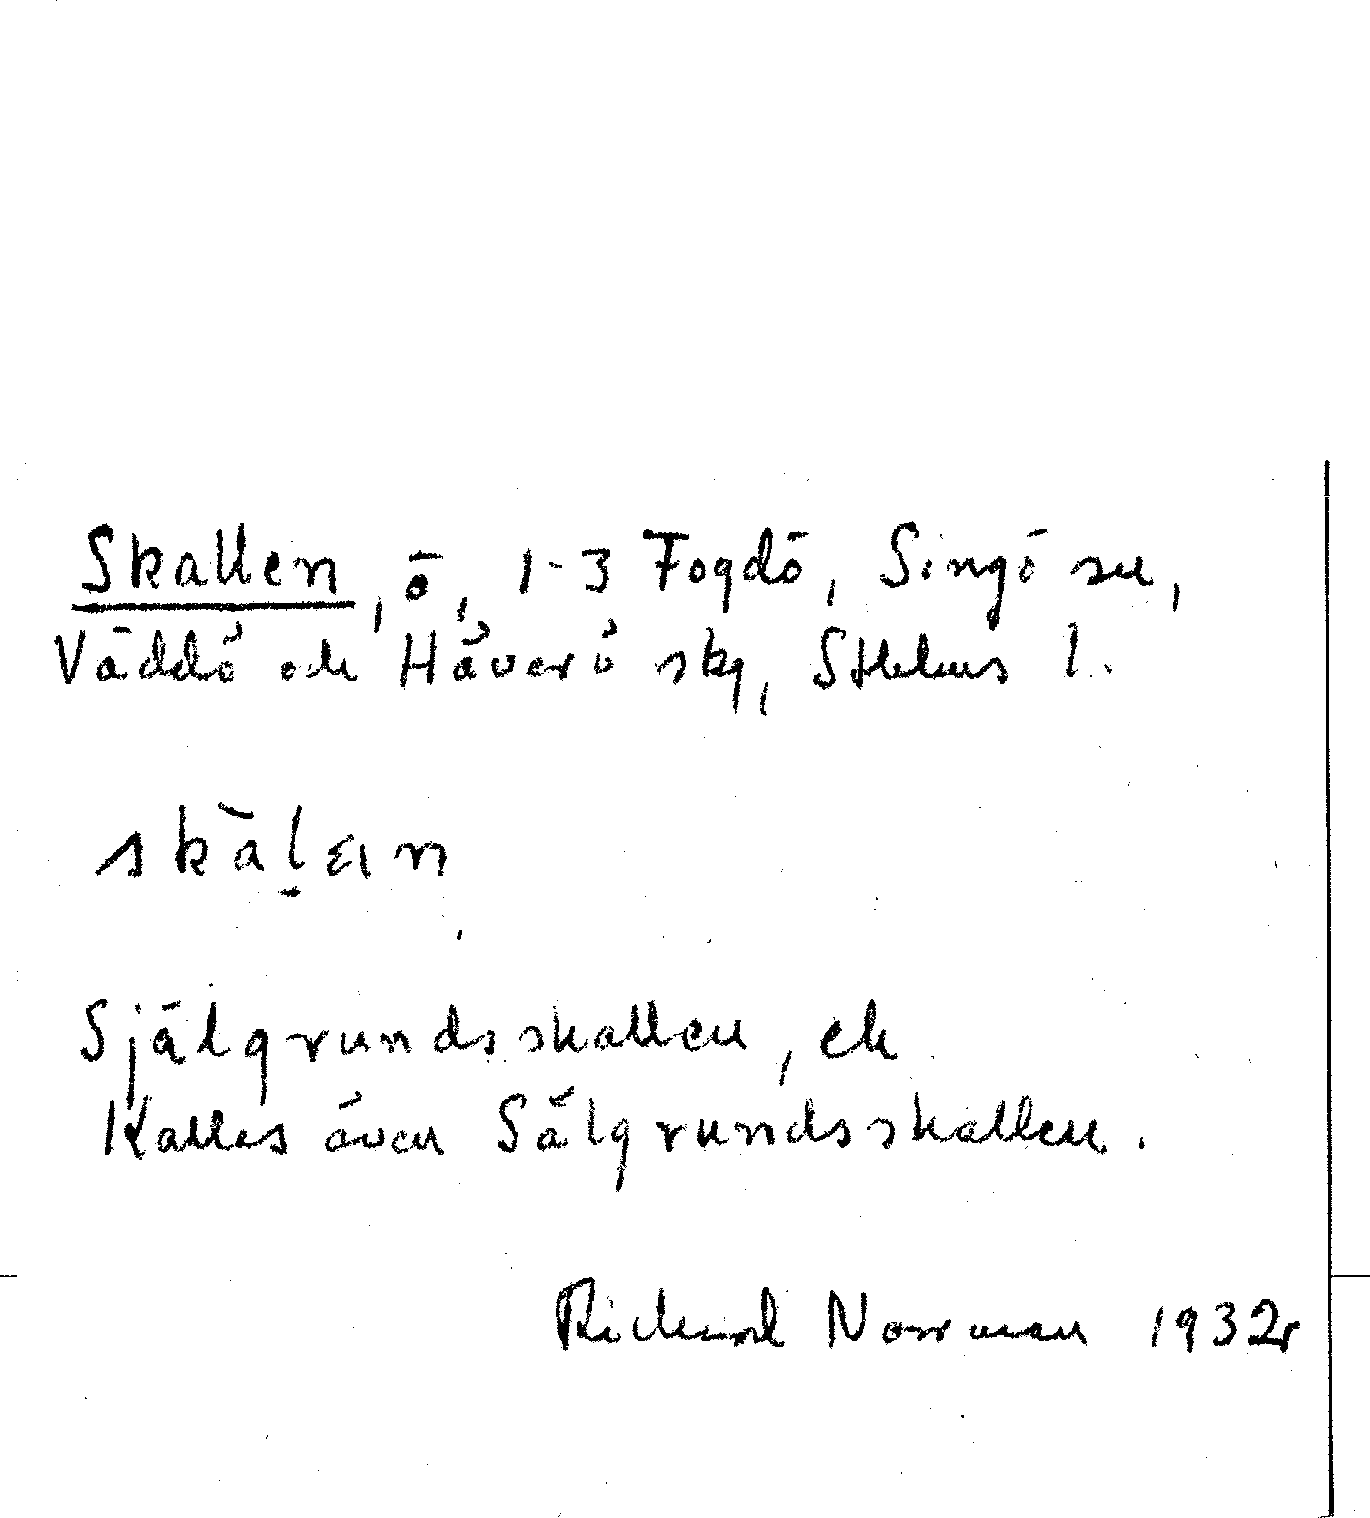 Skallen, ö, 1-3 Fogdö, Singö sn,
Väddö och Häverö skg, Sthlms l.
skàl̠ɛın
Själgrundsskallen, ek
Kallas även Sälgrundsskallen.
Rickard Norrman 1932